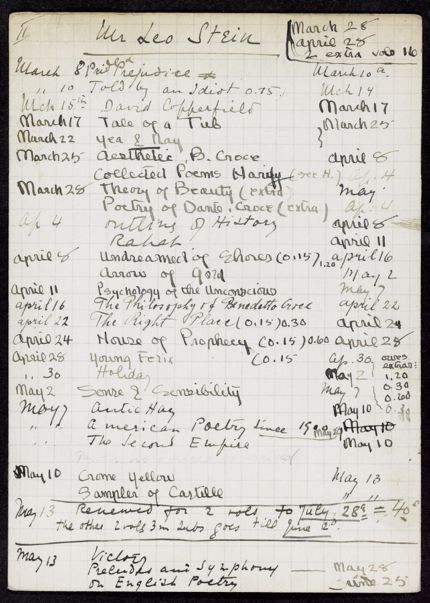 II Mr Leo Stein March 28
April 28
2 extra vols 16
March 8 Pride & Prejudice March 10
" 10 Told by an Idiot 0.75 Mch 14
Mch 15th David Copperfield March 17
March 17 Tale of a Tub March 25
March 22 Yea & Nay
March 25 Aesthetic, B. Croce April 8
Collected Poems Hardy (see H.) Ap. 4
March 28 Theory of Beauty (extra) May
Poetry of Dante, Croce (extra) Ap. 4
Ap 4 Outline of History April 8
Rahab April 11
April 8 Undreamed of Shores (0.15) 1.20 April 16
Arrow of Gold May 2
April 11 Psychology of the Unconscious May 7
April 16 The Philosophy of Benedetto Croce April 22
April 22 The Right Place (0.15) 0.30 April 24
April 24 House of Prophecy (0.15) 0.60 April 28
April 28 Young Felix (0.15 Ap. 30 owes extras:
" 30 Holiday May 2 1.20
May 2 Sense & Sensibility May 7 0.30
May 7 Antic Hay May 10 0.60
" " American Poetry since 1900 May 10 0.30
" " The Second Empire May 10
May 10 Crome Yellow May 13
Sampler of Castille " "
May 13 Renewed for 2 vols to July 28th = 40
The other 2 vols 3m subs goes till June
May 13 Victory
Preludes and Symphony — May 28
on English Poetry — June 25